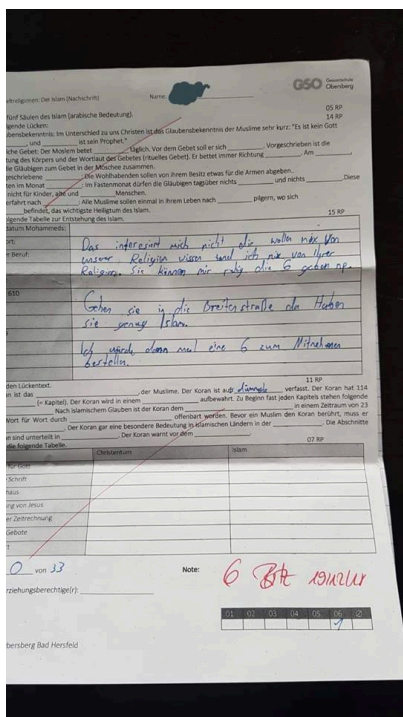 GSO Gesamtschule Obersberg
eltreligionen: Der Islam (Nachschrift) Name:
05 RP
fünf Säulen des Islam (arabische Bedeutung).
14 RP
gende Lücken:
ubensbekenntnis: Im Unterschied zu uns Christen ist das Glaubensbekenntnis der Muslime sehr kurz: "Es ist kein Gott
und ist sein Prophet."
iche Gebet: Der Moslem betet täglich. Vor dem Gebet soll er sich . Vorgeschrieben ist die
tung des Körpers und der Wortlaut des Gebetes (rituelles Gebet). Er bettet immer Richtung . Am
le Gläubigen zum Gebet in der Moschee zusammen.
geschriebene . Die Wohlhabenden sollen von ihrem Besitz etwas für die Armen abgeben.
ten im Monat : Im Fastenmonat dürfen die Gläubigen tagsüber nichts und nichts . Diese
nicht für Kinder, alte und Menschen.
erfahrt nach : Alle Muslime sollen einmal in ihrem Leben nach pilgern, wo sich
befindet, das wichtigste Heiligtum des Islam.
15 RP
lgende Tabelle zur Entstehung des Islam.
datum Mohammeds:
ort:
r Beruf:
Das interesiert mich nicht die wollen nix von
unserer Religion wissen und ich nix von ihrer
Religion. Sie können mir ruhig die 6 geben np.
610
Gehen sie in die Breitenstraße da Haben
sie genug Islam.
Ich würde dann mal eine 6 zum Mitnehmen
bestellen.
11 RP
den Lückentext.
n ist das der Muslime. Der Koran ist auf verfasst. Der Koran hat 114
(= Kapitel). Der Koran wird in einem aufbewahrt. Zu Beginn fast jeden Kapitels stehen folgende
. Nach islamischem Glauben ist der Koran dem in einem Zeitraum von 23
Wort für Wort durch offenbart worden. Bevor ein Muslim den Koran berührt, muss er
. Der Koran gar eine besondere Bedeutung in islamischen Ländern in der . Die Abschnitte
n sind unterteilt in . Der Koran warnt vor dem
07 RP
die folgende Tabelle.
Christentum Islam
für Gott
Schrift
haus
ng von Jesus
er Zeitrechnung
Gebote
t
0 von 33 Note: 6
rziehungsberechtige(r):
01 02 03 04 05 06 Ø
1
bersberg Bad Hersfeld